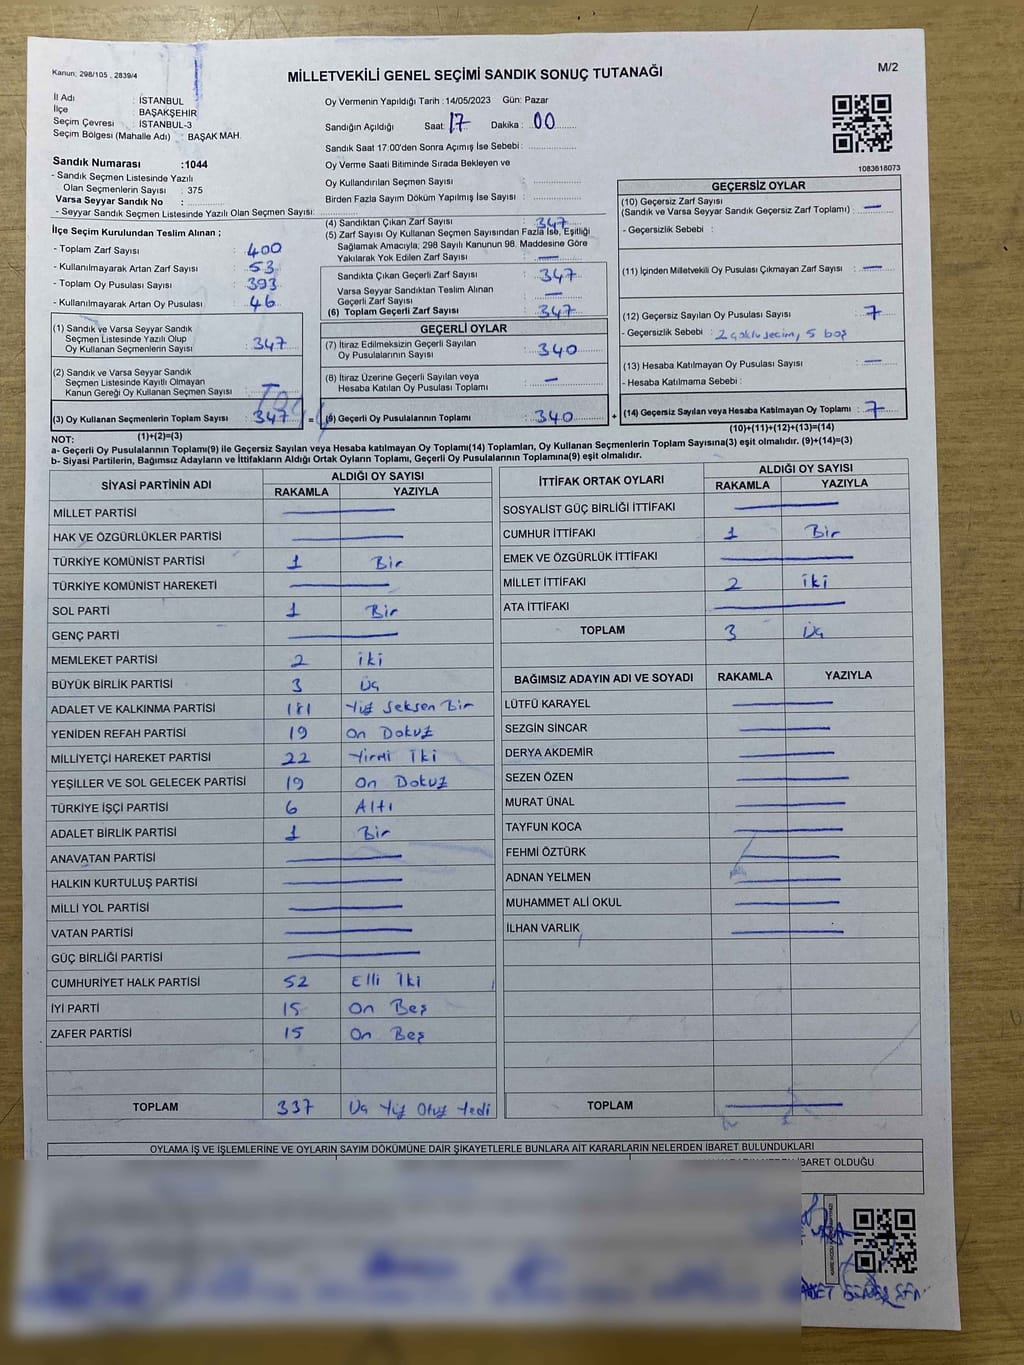 Kanun: 298/105 , 2839/4
MİLLETVEKİLİ GENEL SEÇİMİ SANDIK SONUÇ TUTANAĞI
M/2
İl Adı : İSTANBUL
İlçe : BAŞAKŞEHİR
Seçim Çevresi : İSTANBUL-3
Seçim Bölgesi (Mahalle Adı) : BAŞAK MAH.
Sandık Numarası :1044
- Sandık Seçmen Listesinde Yazılı
Olan Seçmenlerin Sayısı : 375
Varsa Seyyar Sandık No :
- Seyyar Sandık Seçmen Listesinde Yazılı Olan Seçmen Sayısı:
Oy Vermenin Yapıldığı Tarih :14/05/2023 Gün: Pazar
Sandığın Açıldığı Saat: 17 Dakika : 00
Sandık Saat 17:00'den Sonra Açımış İse Sebebi :
Oy Verme Saati Bitiminde Sırada Bekleyen ve
Oy Kullandırılan Seçmen Sayısı
Birden Fazla Sayım Döküm Yapılmış İse Sayısı :
1083618073
İlçe Seçim Kurulundan Teslim Alınan ;
- Toplam Zarf Sayısı : 400
- Kullanılmayarak Artan Zarf Sayısı : 53
- Toplam Oy Pusulası Sayısı : 393
- Kullanılmayarak Artan Oy Pusulası : 46
(1) Sandık ve Varsa Seyyar Sandık
Seçmen Listesinde Yazılı Olup
Oy Kullanan Seçmenlerin Sayısı : 347
(2) Sandık ve Varsa Seyyar Sandık
Seçmen Listesinde Kayıtlı Olmayan
Kanun Gereği Oy Kullanan Seçmen Sayısı :
(3) Oy Kullanan Seçmenlerin Toplam Sayısı : 347 =
(4) Sandıktan Çıkan Zarf Sayısı : 347
(5) Zarf Sayısı Oy Kullanan Seçmen Sayısından Fazla İse, Eşitliği
Sağlamak Amacıyla, 298 Sayılı Kanunun 98. Maddesine Göre
Yakılarak Yok Edilen Zarf Sayısı : —
Sandıkta Çıkan Geçerli Zarf Sayısı : 347
Varsa Seyyar Sandıktan Teslim Alınan
Geçerli Zarf Sayısı : —
(6) Toplam Geçerli Zarf Sayısı : 347
GEÇERLİ OYLAR
(7) İtiraz Edilmeksizin Geçerli Sayılan
Oy Pusulalarının Sayısı : 340
(8) İtiraz Üzerine Geçerli Sayılan veya
Hesaba Katılan Oy Pusulası Toplamı : —
(9) Geçerli Oy Pusulalarının Toplamı : 340 +
GEÇERSİZ OYLAR
(10) Geçersiz Zarf Sayısı
(Sandık ve Varsa Seyyar Sandık Geçersiz Zarf Toplamı) : —
- Geçersizlik Sebebi :
(11) İçinden Milletvekili Oy Pusulası Çıkmayan Zarf Sayısı : —
(12) Geçersiz Sayılan Oy Pusulası Sayısı : 7
- Geçersizlik Sebebi : 2 çoklu seçim, 5 boş
(13) Hesaba Katılmayan Oy Pusulası Sayısı : —
- Hesaba Katılmama Sebebi :
(14) Geçersiz Sayılan veya Hesaba Katılmayan Oy Toplamı : 7
NOT: (1)+(2)=(3)
(10)+(11)+(12)+(13)=(14)
a- Geçerli Oy Pusulalarının Toplamı(9) ile Geçersiz Sayılan veya Hesaba katılmayan Oy Toplamı(14) Toplamları, Oy Kullanan Seçmenlerin Toplam Sayısına(3) eşit olmalıdır. (9)+(14)=(3)
b- Siyasi Partilerin, Bağımsız Adayların ve İttifakların Aldığı Ortak Oyların Toplamı, Geçerli Oy Pusulalarının Toplamına(9) eşit olmalıdır.
SİYASİ PARTİNİN ADI ALDIĞI OY SAYISI
RAKAMLA YAZIYLA
MİLLET PARTİSİ —
HAK VE ÖZGÜRLÜKLER PARTİSİ —
TÜRKİYE KOMÜNİST PARTİSİ 1 Bir
TÜRKİYE KOMÜNİST HAREKETİ —
SOL PARTİ 1 Bir
GENÇ PARTİ —
MEMLEKET PARTİSİ 2 iki
BÜYÜK BİRLİK PARTİSİ 3 Üç
ADALET VE KALKINMA PARTİSİ 181 Yüz Seksen Bir
YENİDEN REFAH PARTİSİ 19 On Dokuz
MİLLİYETÇİ HAREKET PARTİSİ 22 Yirmi İki
YEŞİLLER VE SOL GELECEK PARTİSİ 19 On Dokuz
TÜRKİYE İŞÇİ PARTİSİ 6 Altı
ADALET BİRLİK PARTİSİ 1 Bir
ANAVATAN PARTİSİ —
HALKIN KURTULUŞ PARTİSİ —
MİLLİ YOL PARTİSİ —
VATAN PARTİSİ —
GÜÇ BİRLİĞİ PARTİSİ —
CUMHURİYET HALK PARTİSİ 52 Elli İki
İYİ PARTİ 15 On Beş
ZAFER PARTİSİ 15 On Beş
TOPLAM 337 Üç Yüz Otuz Yedi
İTTİFAK ORTAK OYLARI ALDIĞI OY SAYISI
RAKAMLA YAZIYLA
SOSYALİST GÜÇ BİRLİĞİ İTTİFAKI —
CUMHUR İTTİFAKI 1 Bir
EMEK VE ÖZGÜRLÜK İTTİFAKI —
MİLLET İTTİFAKI 2 iki
ATA İTTİFAKI —
TOPLAM 3 Üç
BAĞIMSIZ ADAYIN ADI VE SOYADI RAKAMLA YAZIYLA
LÜTFÜ KARAYEL —
SEZGİN SİNCAR —
DERYA AKDEMİR —
SEZEN ÖZEN —
MURAT ÜNAL —
TAYFUN KOCA —
FEHMİ ÖZTÜRK —
ADNAN YELMEN —
MUHAMMET ALİ OKUL —
İLHAN VARLIK —
TOPLAM —
OYLAMA İŞ VE İŞLEMLERİNE VE OYLARIN SAYIM DÖKÜMÜNE DAİR ŞİKAYETLERLE BUNLARA AİT KARARLARIN NELERDEN İBARET BULUNDUKLARI
İBARET OLDUĞU